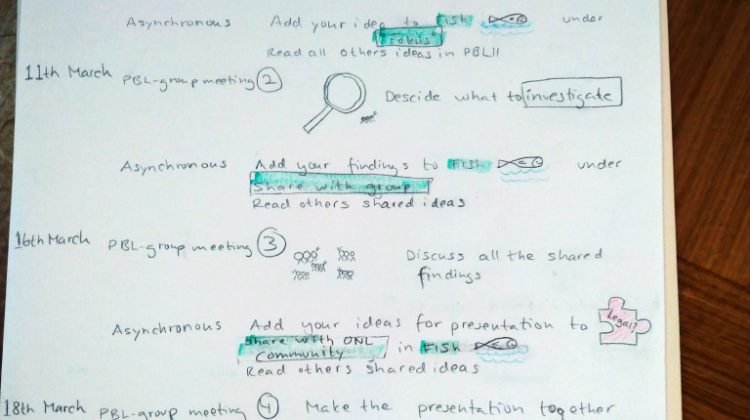 Asynchronous Add your idea to Fish under
"Fokus"
Read all others ideas in PBL11
11th March PBL-group meeting 2
Descide what to investigate
Asynchronous Add your findings to Fish under
Share with group
Read others shared ideas
16th March PBL-group meeting 3 Discuss all the shared
findings
Asynchronous Add your ideas for presentation to Legal?
Share with ONL
Community in Fish
Read others shared ideas
18th March PBL-group meeting 4 Make the presentation together